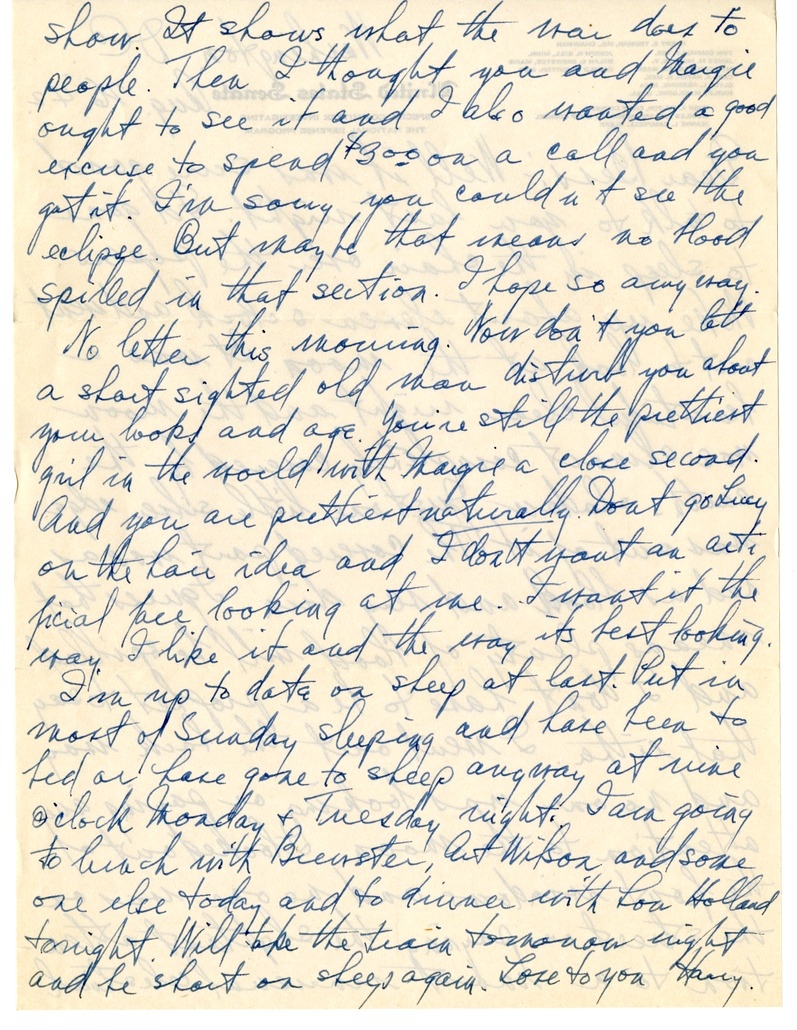 show. It shows what the war does to
people. Then I thought you and Margie
ought to see it and I also wanted a good
excuse to spend $3.00 on a call and you
got it. I'm sorry you couldn't see the
eclipse. But maybe that means no blood
spilled in that section. I hope so anyway.
No letter this morning. Now don't you let
a short sighted old man disturb you about
your looks and age. You're still the prettiest
girl in the world with Margie a close second.
And you are prettiest naturally. Dont go Lucy
on the hair idea and I don't want an arti
ficial face looking at me. I want it the
way I like it and the way its best looking.
I'm up to date on sleep at last. Put in
most of Sunday sleeping and have been to
bed or have gone to sleep anyway at nine
o'clock Monday & Tuesday night. I am going
to lunch with Brewster, Art Wilson and some
one else today and to dinner with Lou Holland
tonight. Will take the train tomorrow night
and be short on sleep again. Love to you Harry.